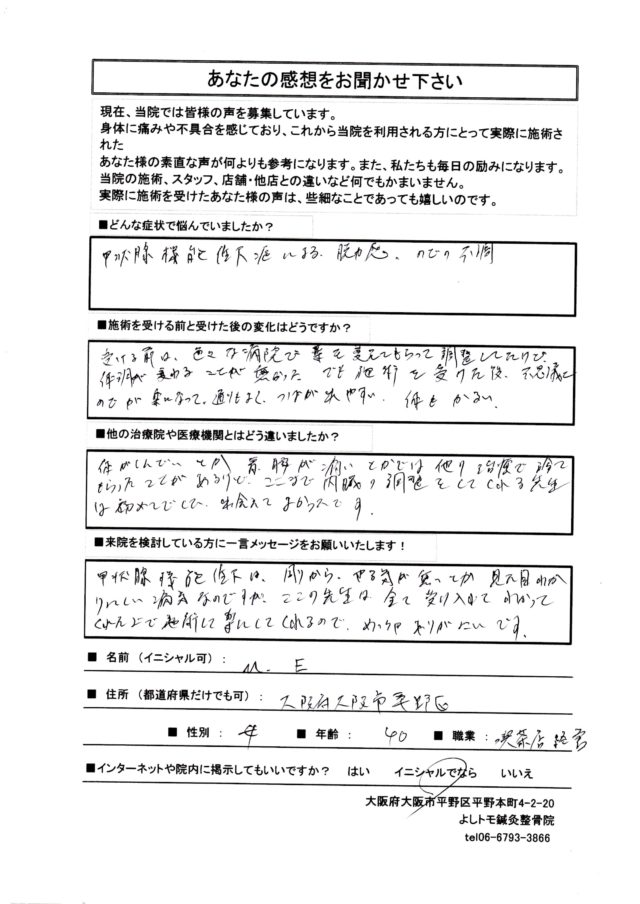 あなたの感想をお聞かせ下さい
現在、当院では皆様の声を募集しています。
身体に痛みや不具合を感じており、これから当院を利用される方にとって実際に施術さ
れた
あなた様の素直な声が何よりも参考になります。また、私たちも毎日の励みになります。
当院の施術、スタッフ、店舗・他店との違いなど何でもかまいません。
実際に施術を受けたあなた様の声は、些細なことであっても嬉しいのです。
■どんな症状で悩んでいましたか？
甲状腺機能低下症による、脱力感、のどの不調
■施術を受ける前と受けた後の変化はどうですか？
受ける前は、色々な病院で薬を変えてもらって調整してたけど、
体調が変わることが無かった でも施術を受けた後、不思議に
のどが楽になって、通りもよく、つばが出やすい、体もかるい
■他の治療院や医療機関とはどう違いましたか？
体がしんどいとか 首、腰が痛いとかでは他の治療で診て
もらったことがあるけど、ここまで内臓の調整をしてくれる先生
は初めてでしたので、出会えてよかったです。
■来院を検討している方に一言メッセージをお願いいたします！
甲状腺機能低下は、周りから、やる気が無いとか 見た目わか
りにくい病気なのですが、ここの先生は全て受け入れて わかって
くれた上で施術して楽にしてくれるので、めっちゃありがたいです。
■ 名前（イニシャル可）： M. E
■ 住所（都道府県だけでも可）： 大阪府大阪市平野区
■ 性別： 女 ■ 年齢： 40 ■ 職業： 喫茶店経営
■インターネットや院内に掲示してもいいですか？ はい イニシャルでなら いいえ
大阪府大阪市平野区平野本町4-2-20
よしトモ鍼灸整骨院
tel06-6793-3866